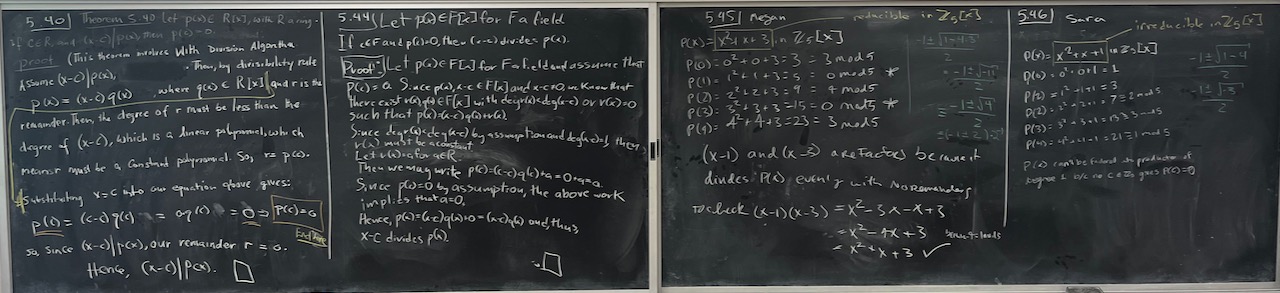 5.40 Theorem 5.40 Let p(x) ∈ R[x], with R a ring.
if c∈R and (x-c)|p(x), then p(c)=0.
proof (This theorem involves With Division Algorithm
Assume (x-c)|p(x). Then, by divisibility rule
p(x) = (x-c) q(x) where q(x) ∈ R[x] and r is the
remainder. Then, the degree of r must be less than the
degree of (x-c), which is a linear polynomial, which
means r must be a constant polynomial. So, r =
Substituting x=c into our equation above gives:
p(c) = (c-c) q(c) = 0q(c) = 0 ⇒ p(c)=0
End here
So, since (x-c)|p(x), our remainder r = 0.
Hence, (x-c)|p(x). □
5.44 Let p(x)∈F[x] for F a field
If c∈F and p(c)=0, then (x-c) divides p(x).
Proof: Let p(x)∈F[x] for F a field and assume that
p(c)=0. Since p(x), x-c∈F[x] and x-c≠0 we know that
there exist r(x), q(x)∈F[x] with deg r(x)<deg(x-c) or r(x)=0
such that p(x)=(x-c)q(x)+r(x).
Since deg r(x)<deg(x-c) by assumption and deg(x-c)=1, then
r(x) must be a constant
Let r(x)=a for a∈
Then we may write p(c)=(c-c)q(c)+a=0+a=a.
Since p(c)=0 by assumption, the above work
implies that a=0.
Hence, p(x)=(x-c)q(x)+0=(x-c)q(x) and, thus,
x-c divides p(x).
□
5.45 Megan reducible in Z₅[x]
p(x) = x²+x+3 in Z₅[x]
p(0) = 0²+0+3 = 3 = 3 mod 5
p(1) = 1²+1+3 = 5 = 0 mod 5 *
p(2) = 2²+2+3 = 9 = 4 mod 5
p(3) = 3²+3+3 = 15 = 0 mod 5 *
p(4) = 4²+4+3 = 23 = 3 mod 5
(x-1) and (x-3) are factors because it
divides p(x) evenly with no remainders
to check (x-1)(x-3) = x²-3x-x+3
= x²-4x+3 because -4=1 mod 5
= x²+x+3 ✓
5.46 Sara irreducible in Z₅[x]
p(x) = x²+x+1 in Z₅[x]
p(0) = 0²+0+1 = 1
p(2) = 2²+2+1 = 7 = 2 mod 5
p(3) = 3²+3+1 = 13 = 3 mod 5
p(4) = 4²+4+1 = 21 = 1 mod 5
p(x) can't be factored into product of
degree 1 b/c no c ∈ Z₅ gives p(c)=0